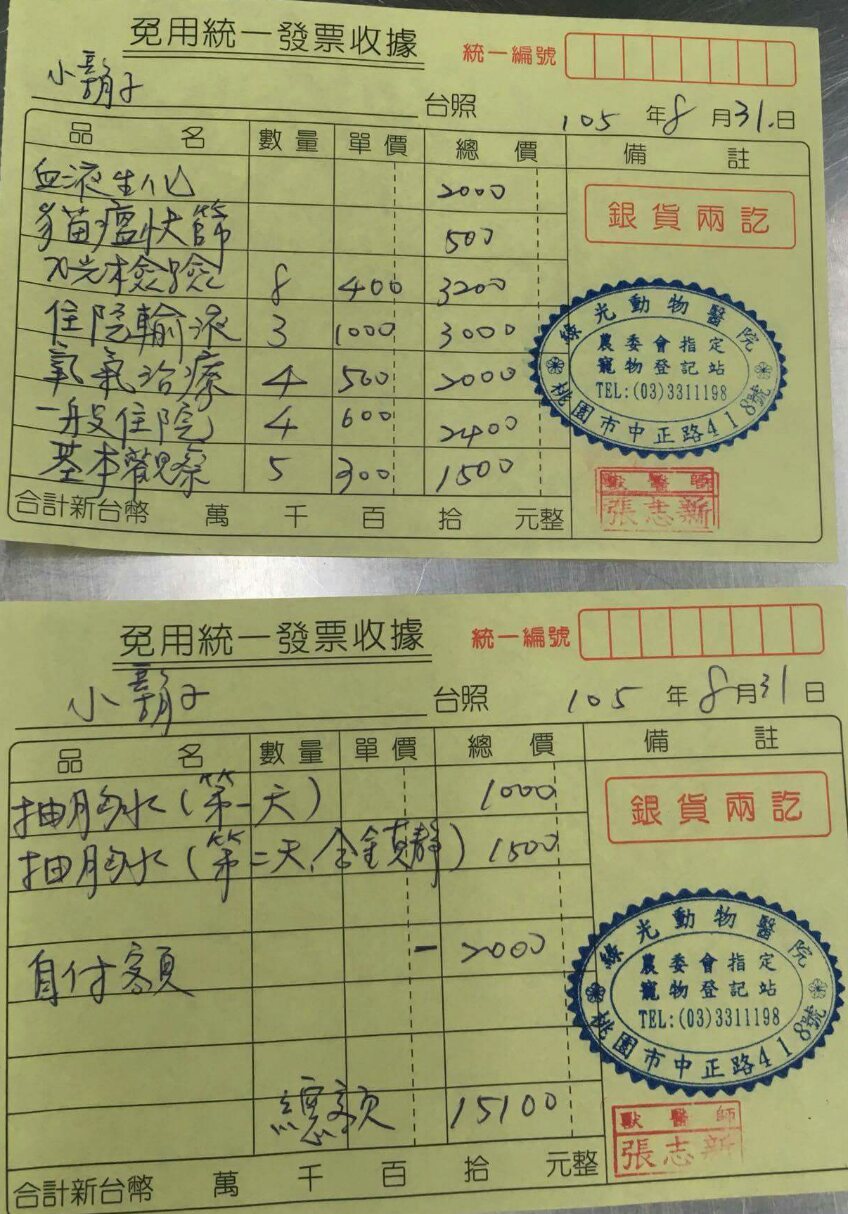 免用統一發票收據
統一編號
小鬍子 台照
105 年 8 月 31 日
品名 數量 單價 總價 備註
血液生化 2000
貓瘟快篩 500
X光檢驗 8 400 3200
住院輸液 3 1000 3000
氧氣治療 4 500 2000
一般住院 4 600 2400
基本觀察 5 300 1500
合計新台幣 萬 千 百 拾 元整
銀貨兩訖
綠光動物醫院
農委會指定
寵物登記站
TEL:(03)3311198
桃園市中正路418號
獸醫師
張志新
免用統一發票收據
統一編號
小鬍子 台照
105 年 8 月 31 日
品名 數量 單價 總價 備註
抽胸水(第一天) 1000
抽胸水(第二天,含鎮靜) 1500
自付額 - 2000
總額 15100
合計新台幣 萬 千 百 拾 元整
銀貨兩訖
綠光動物醫院
農委會指定
寵物登記站
TEL:(03)3311198
桃園市中正路418號
獸醫師
張志新